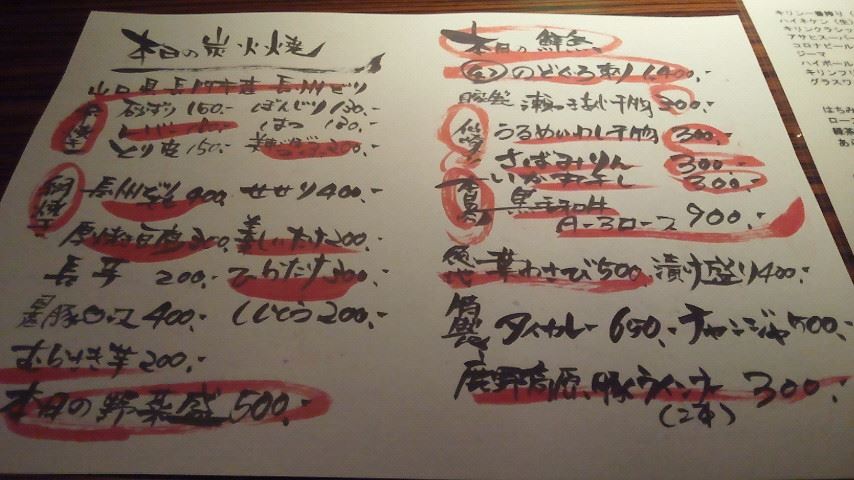 本日の炭火焼
山口県長門市産 長州どり
串焼
砂ずり 150.- ぼんじり 130.-
レバー はつ 130.-
とり皮 150.- 200.-
網焼
長州どり 400.- せせり 400.-
厚切豆腐 300.- 美しいたけ 200.-
長芋 200.- ひらたけ 300.-
黒豚ロース 400.- ししとう 200.-
むらさき芋 200.-
本日の野菜盛 500.-
本日の鮮魚
のどぐろ刺り 1,400.-
瀬つきあじ干物 300.-
仙崎
うるめいわし干物 300.-
さばみりん 300.-
いか 300.-
黒毛和牛
A-3ロース 900.-
葉わさび 500.- 漬け盛り 400.-
特製
タイカレー 650.- チャンジャ 500.-
鹿野高原豚ウインナー 300.-
(2本)
キリン一番搾り
ハイネケン (生)
キリンクラシッ
アサヒスーパー
コロナビール
ジーマ
ハイボール
キリンフリ
グラスワ
はちみ
ロー
緑茶
あら